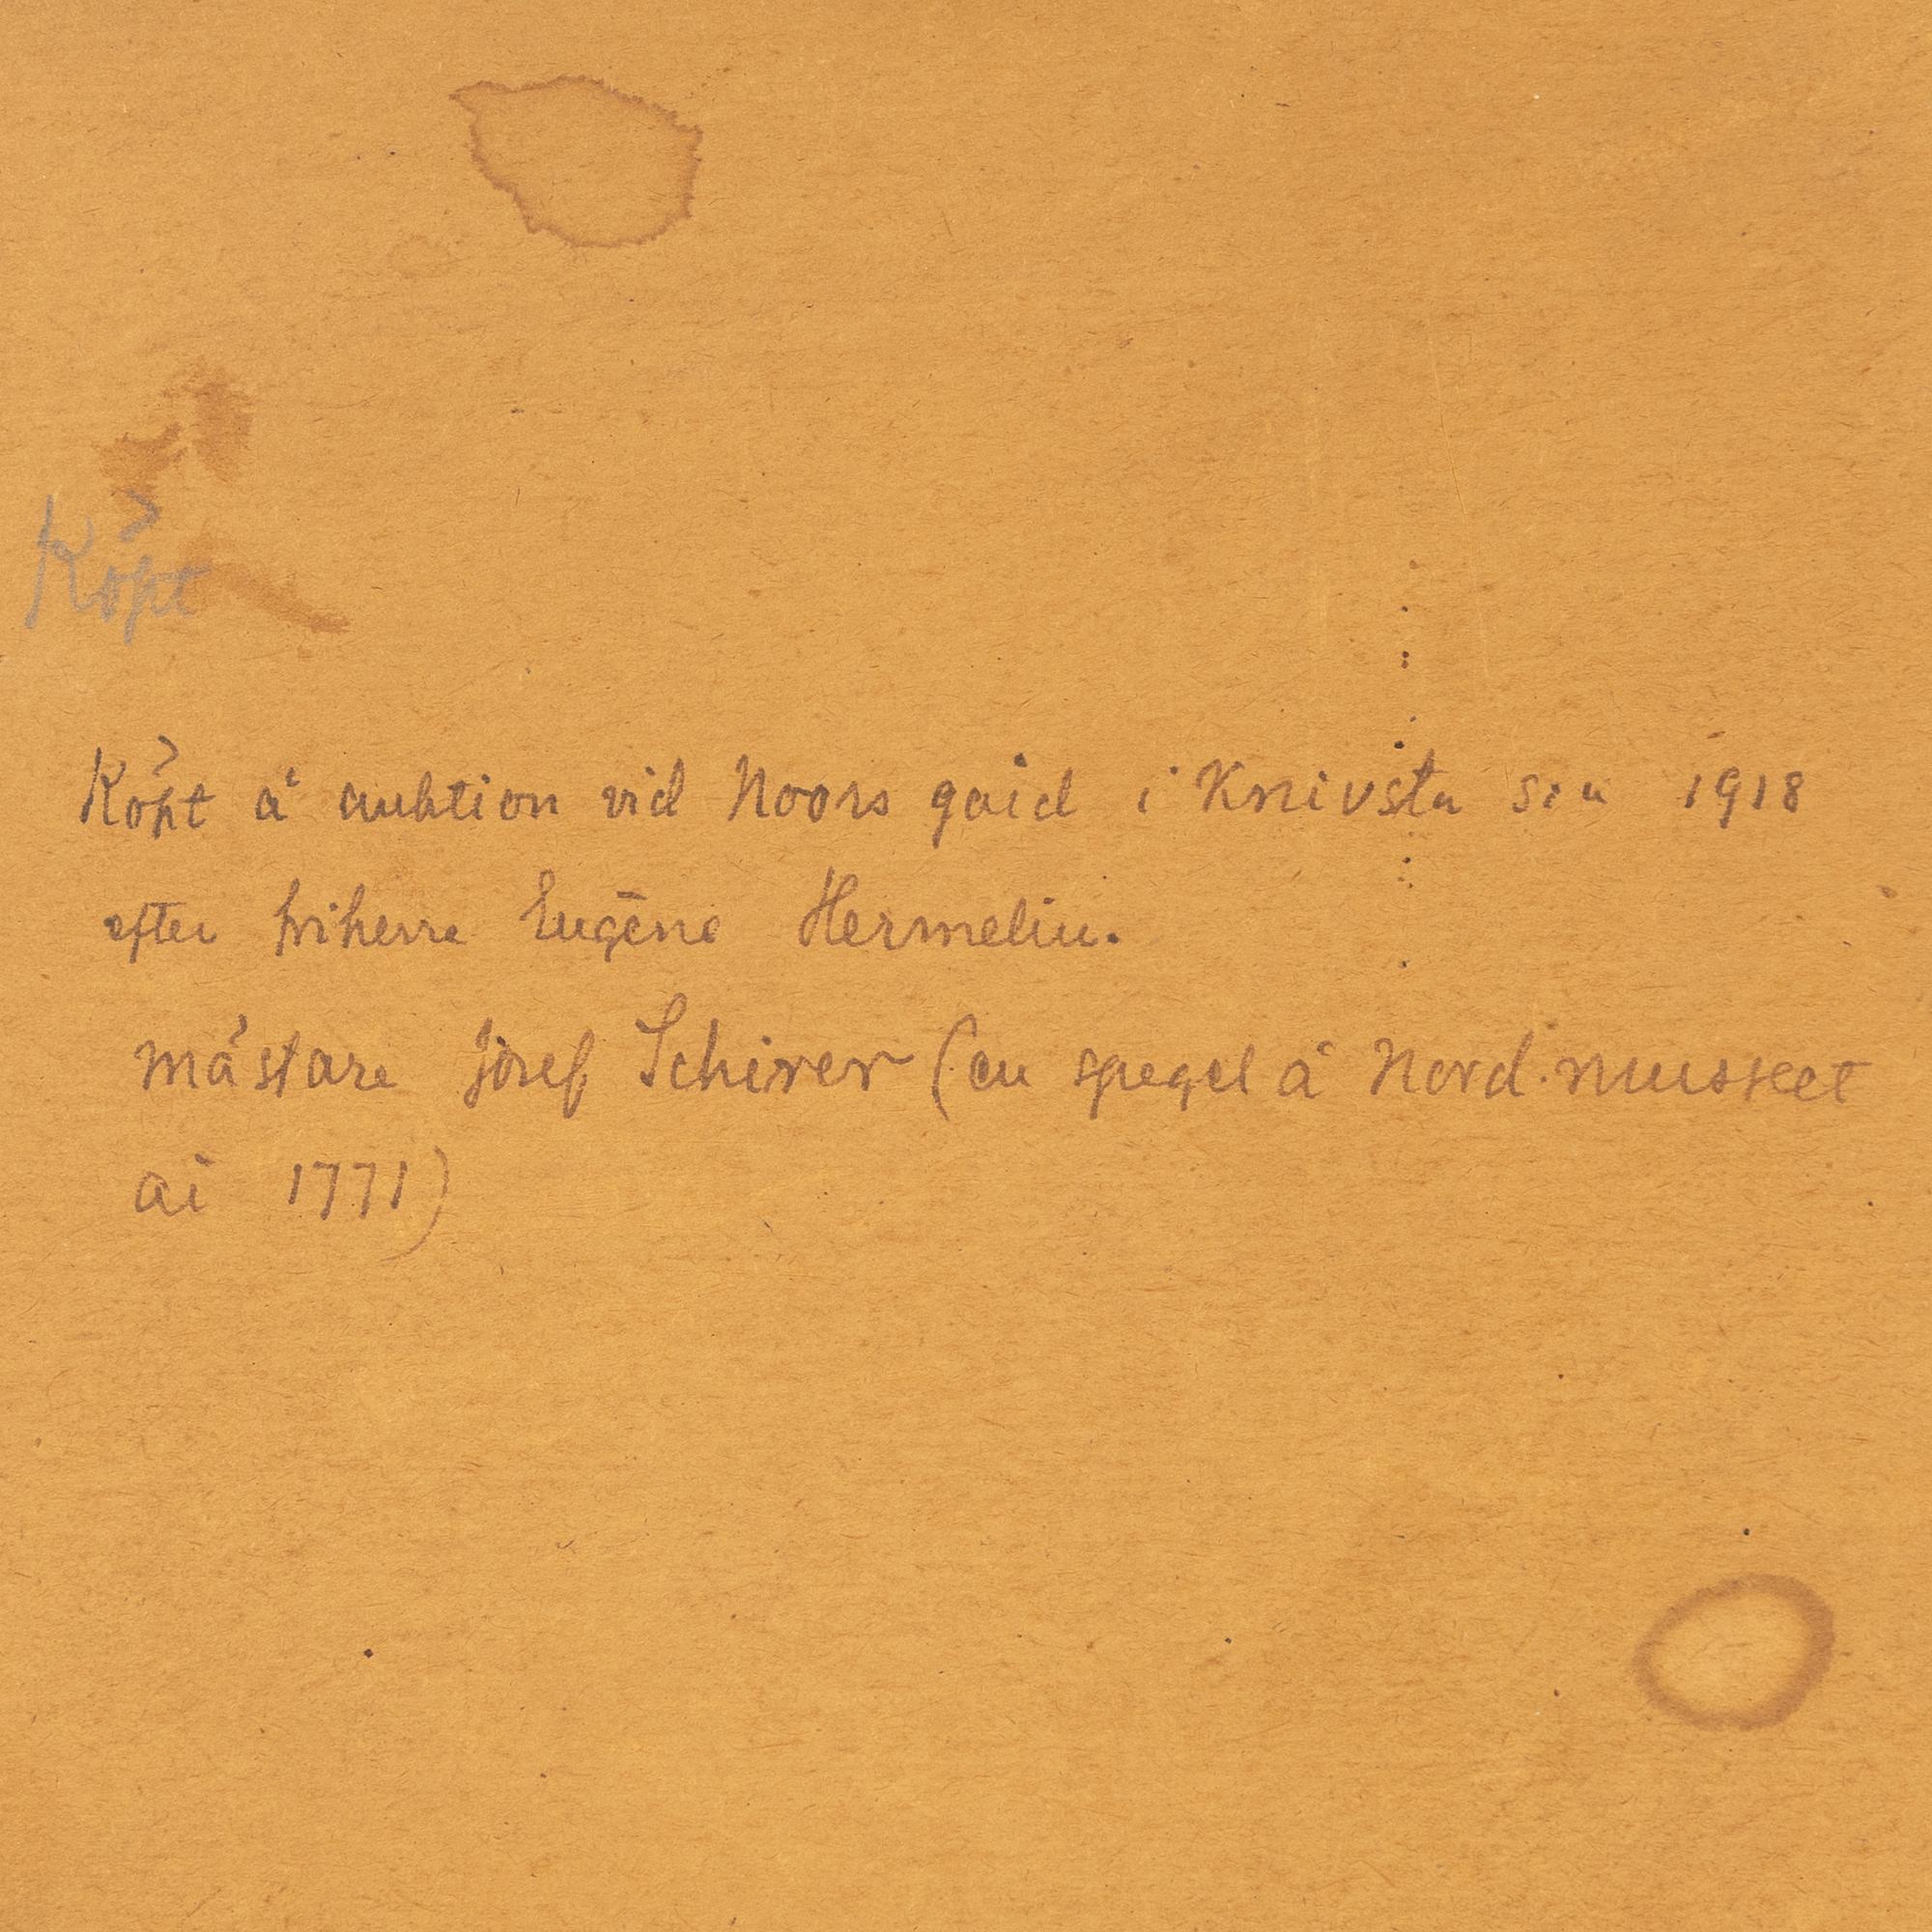 Köpt
Köpt å auktion vid Noors gård i Knivsta s:n 1918
efter friherre Eugène Hermelin.
mästare Josef Schirer (en spegel å Nord. museet
år 1771)